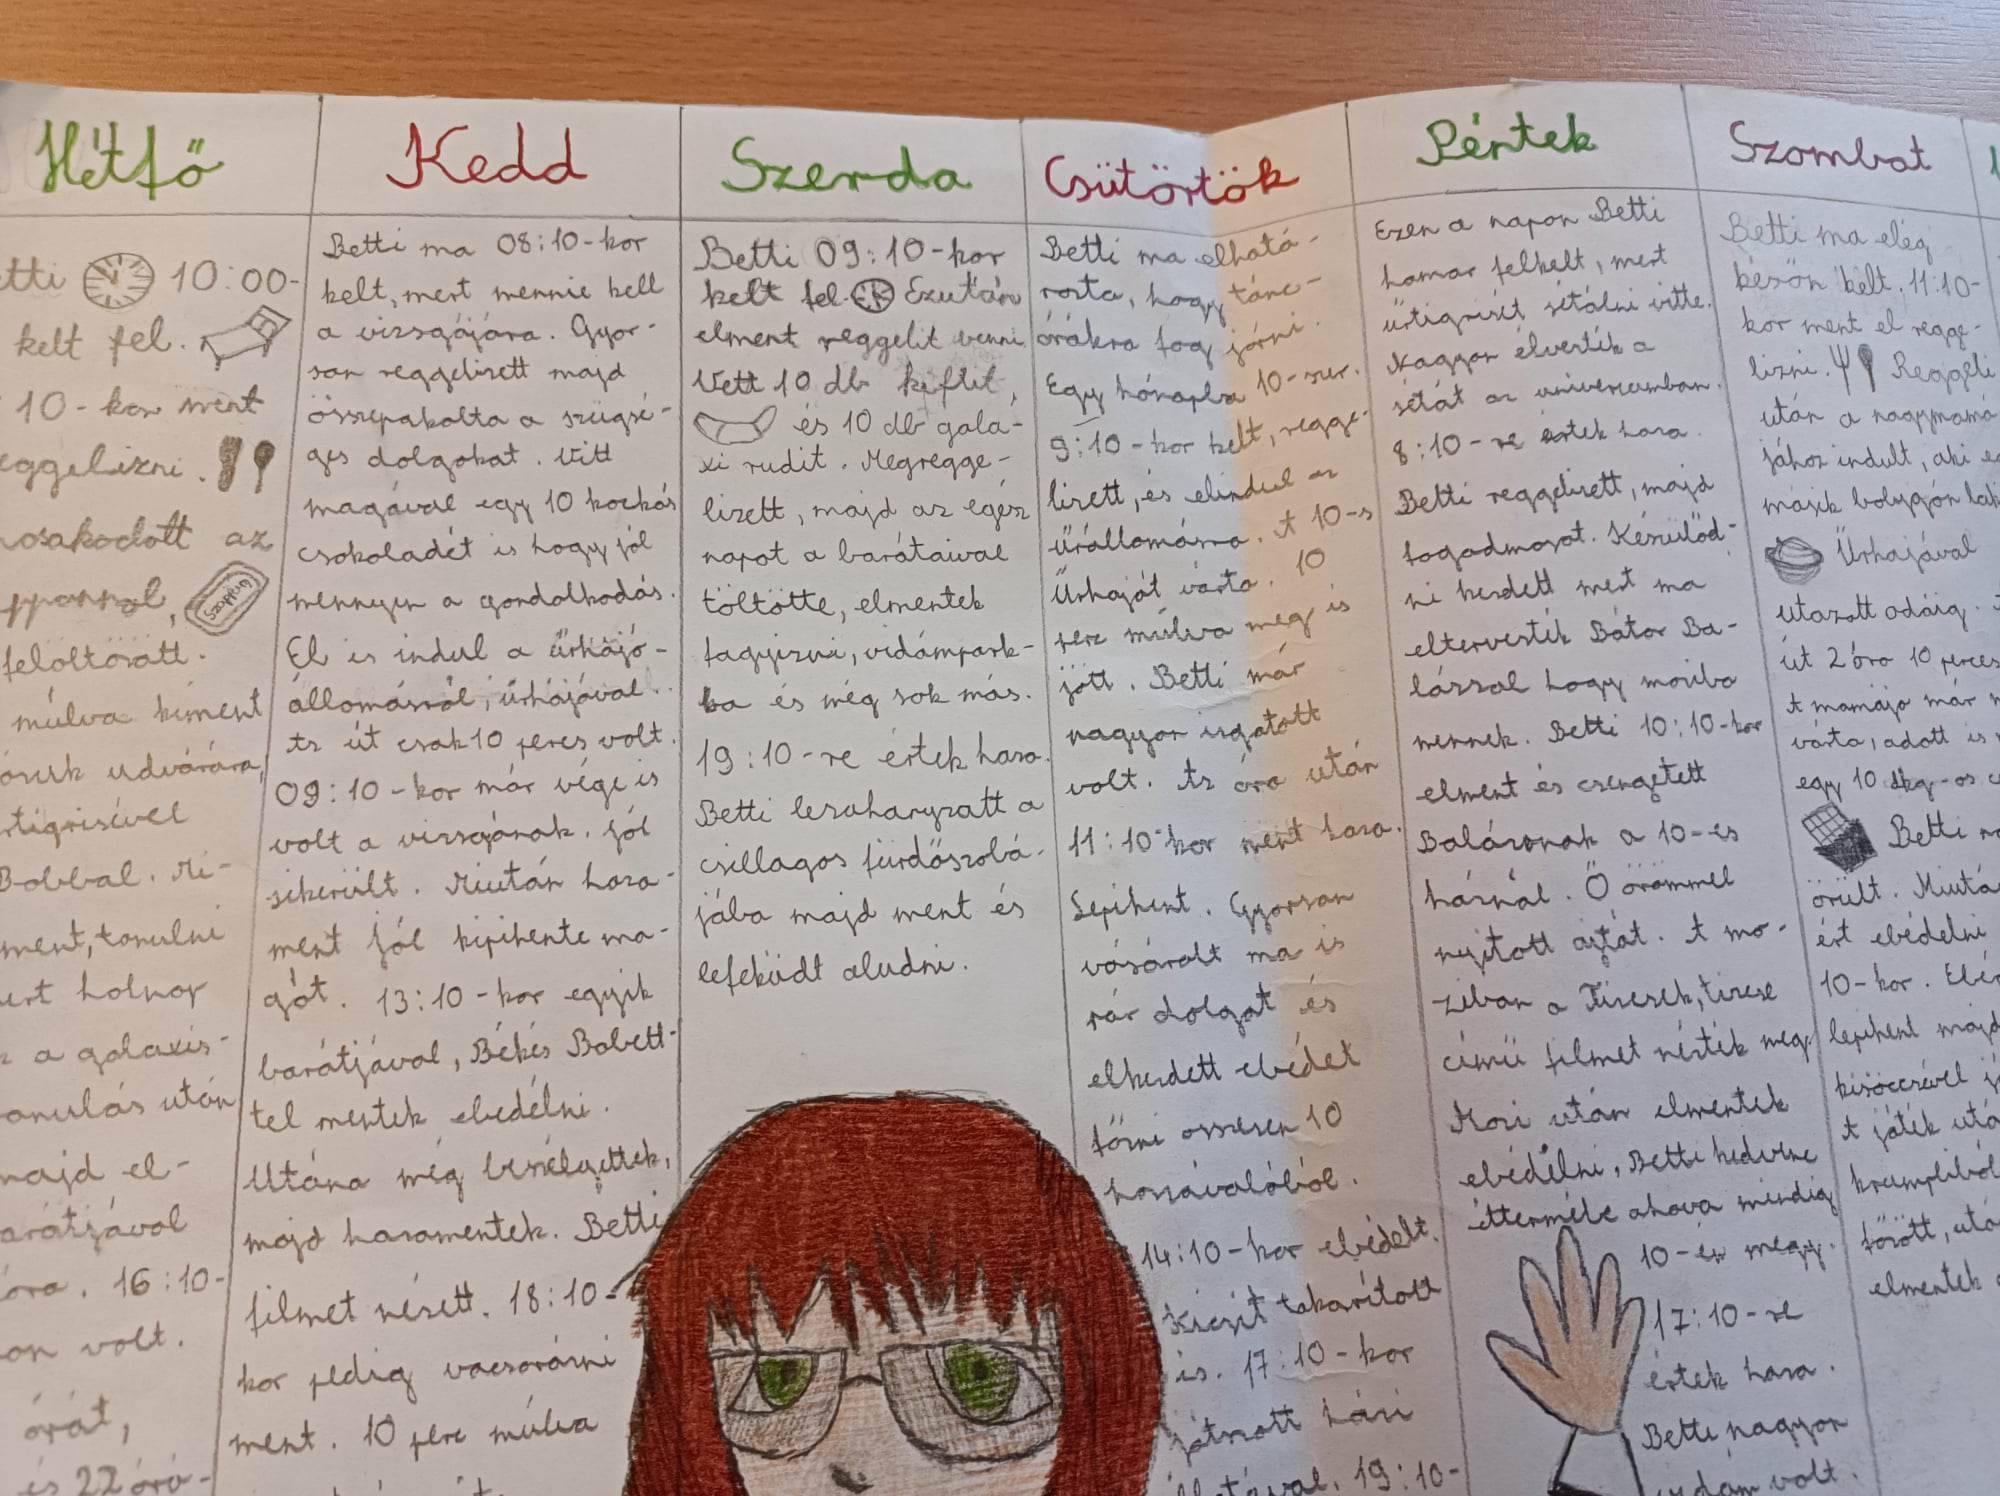 Hétfő
10:00-
kelt fel.
10-kor ment
az
Szappan
felöltözött.
múlva kiment
udvarára,
Bobbal. Mi-
ment, tanulni
holnap
a galaxis-
után
majd el-
óra. 16:10-
volt.
órát,
és 22 óra-
Kedd
Betti ma 08:10-kor
kelt, mert mennie kell
a vizsgájára. Gyor-
san reggelizett majd
összepakolta a szügsé-
ges dolgokat. Vitt
magával egy 10 kockás
csokoladét is hogy jól
mennyen a gondolkodás.
El is indul a űrhajó-
állomásról, űrhajóval.
Az út csak 10 perces volt.
09:10-kor már vége is
volt a vizsgának. Jól
sikerült. Miután haza-
ment jól kipihente ma-
gát. 13:10-kor egyik
barátjával, Békés Babett-
tel mentek ebédelni.
Utána még beszélgettek,
majd hazamentek. Betti
filmet nézett. 18:10-
kor pedig vacsorázni
ment. 10 perc múlva
Szerda
Betti 09:10-kor
kelt fel. Ezután
elment reggelit venni.
Vett 10 db kiflit,
és 10 db gala-
xi rudit. Megregge-
lizett, majd az egész
napot a barátaival
töltötte, elmentek
fagyizni, vidámpark-
ba és még sok más.
19:10-re értek haza.
Betti lezuhanyzatt a
csillagos fürdőszobá-
jába majd ment és
lefeküdt aludni.
Csütörtök
Betti ma elhatá-
rozta, hogy tánc-
órákra fog járni.
Egy hónapba 10-szer.
9:10-kor kelt, regge-
lizett, és elindul az
űrállomásra. A 10-s
űrhaját várta. 10
perc múlva meg is
jött. Betti már
nagyon izgatott
volt. Az óra után
11:10-kor ment haza.
Lepihent. Gyorsan
vásárolt ma is
pár dolgot és
elkezdett ebédet
főzni összesen 10
hozzávalóból.
14:10-kor ebédelt.
Kicsit takarított
is. 17:10-kor
játszott házi
állatával. 19:10-
Péntek
Ezen a napon Betti
hamar felkelt, mert
űrtigrisét sétálni vitte.
Nagyon élvezték a
sétát az univerzumban.
8:10-re értek haza.
Betti reggelizett, majd
fogadmosot. Készülőd-
ni kezdett mert ma
eltervezték Bátor Ba-
lázzsal hogy moziba
mennek. Betti 10:10-kor
elment és csengetett
Balázsnak a 10-es
háznál. Ő örömmel
nyitott ajtót. A mo-
ziban a Tizesek, tizese
című filmet nézték meg.
Mozi után elmentek
ebédelni, Betti kedvenc
éttermébe ahova mindig
10-én megy.
17:10-re
értek haza.
Betti nagyon
vidám volt.
Szombat
Betti ma elég
későn kelt. 11:10-
kor ment el regge-
lizni. Reggeli
után a nagymamá
jához indult, aki
másik bolygón
Űrhajával
utazott odáig.
út 2 óra 10 perces
A mamája már
várta, adott is
egy 10 dkg-os
Betti
örült. Miutá
ért ebédelni
10-kor.
lepihent majd
kisöccsével
A játék
krumpliból
főzött, utá
elmentek